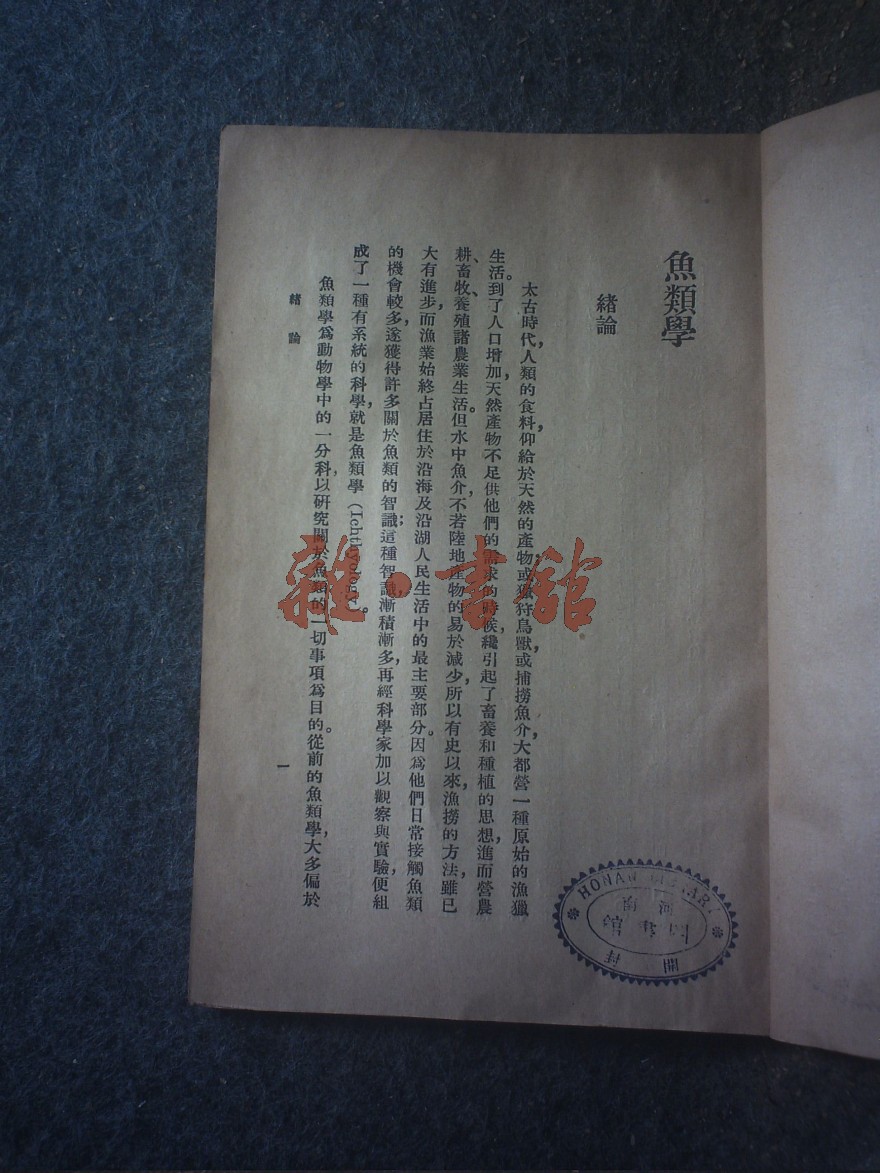 魚類學
緒論
太古時代，人類的食料，仰給於天然的產物；或獵狩鳥獸，或捕撈魚介，大都營一種原始的漁獵
生活。到了人口增加，天然產物不足供他們的需求的時候，纔引起了畜養和種植的思想，進而營農
耕、畜牧、養殖諸農業生活。但水中魚介，不若陸地產物的易於減少，所以有史以來，漁撈的方法，雖已
大有進步，而漁業始終占居住於沿海及沿湖人民生活中的最主要部分。因爲他們日常接觸魚類
的機會較多，遂獲得許多關於魚類的智識；這種智識，漸積漸多，再經科學家加以觀察與實驗，便組
成了一種有系統的科學，就是魚類學 (Ichthyology)。
魚類學爲動物學中的一分科，以研究關於魚類的一切事項爲目的。從前的魚類學，大多偏於
緒論
一
雜·書館
HONAN LIBRARY
河南
圖書館
開封